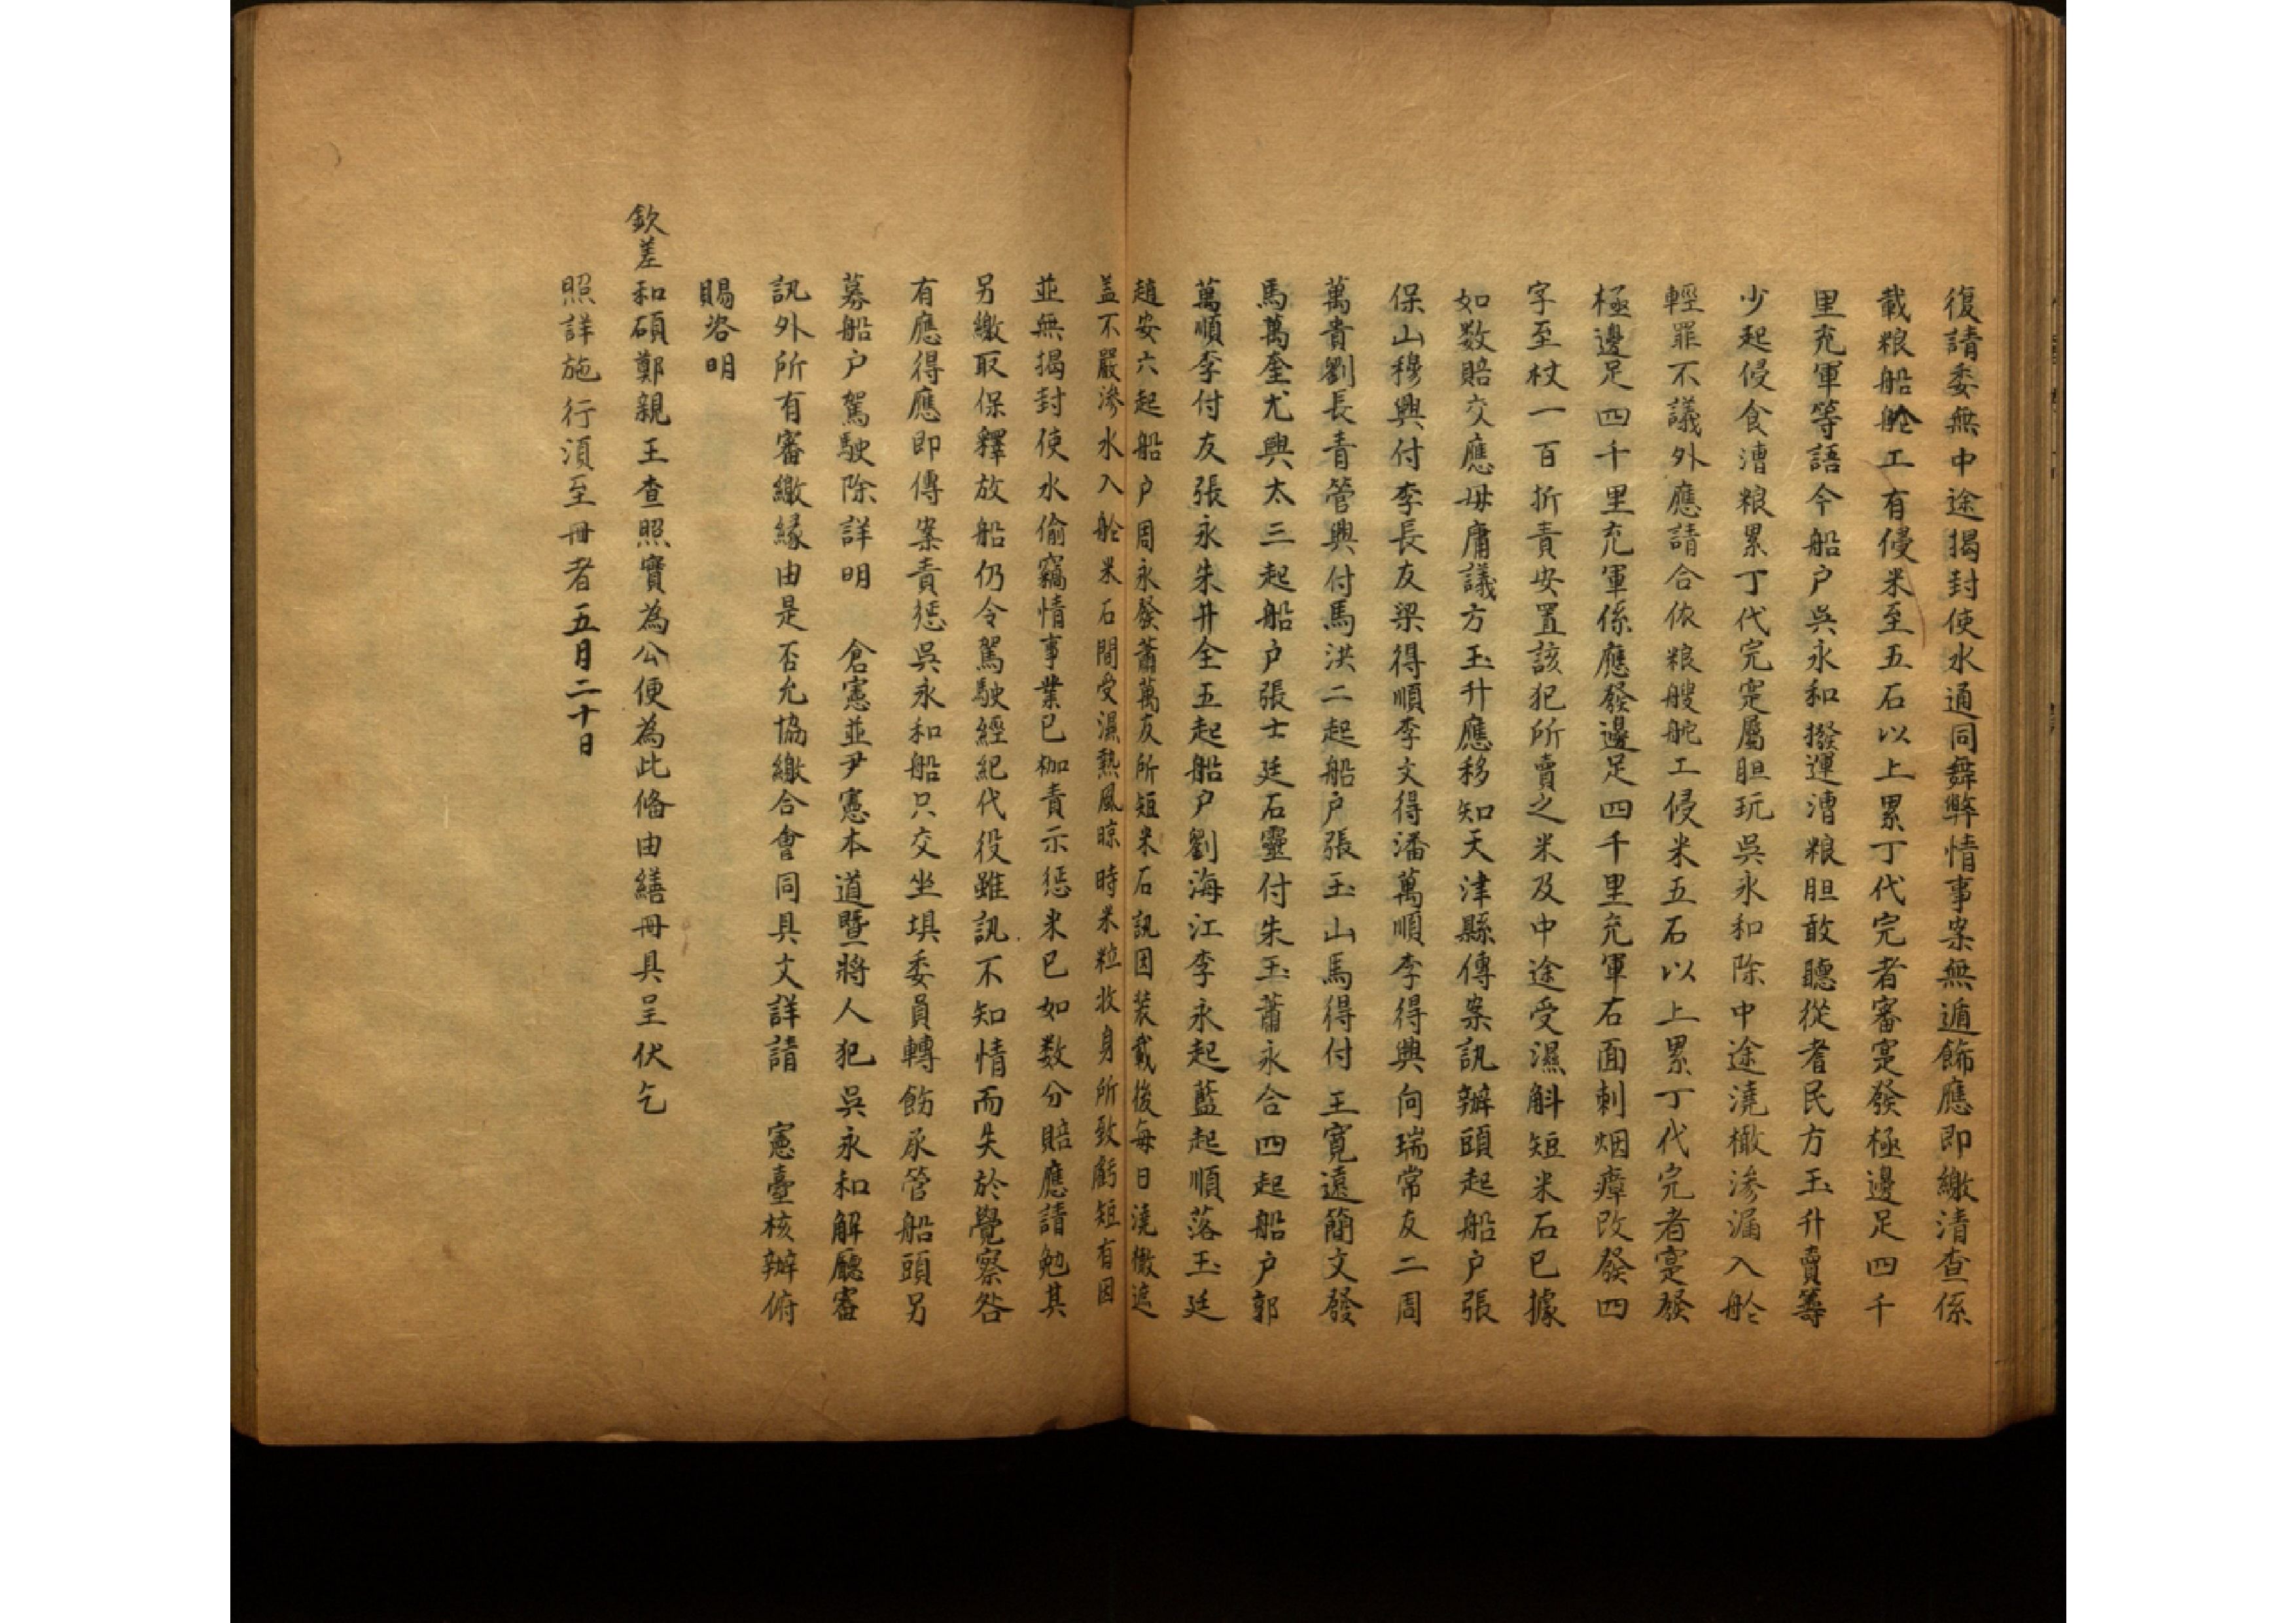 復請委無中途揭封使水通同舞弊情事案無遁飾應即繳清查係
載粮船舱工有侵米至五石以上累丁代完者審寔發極邊足四千
里充軍等語今船户吳永和撥運漕粮胆敢聽從耆民方玉升賣籌
少起侵食漕粮累丁代完寔屬胆玩吳永和除中途澆橵滲漏入舱
輕罪不議外應請合依粮艘舵工侵米五石以上累丁代完者寔發
極邊足四千里充軍係應發邊足四千里充軍右面刺烟瘴改發四
字至杖一百折責安置該犯所賣之米及中途受濕斛短米石已據
如数賠交應毋庸議方玉升應移知天津縣傳案訊辦頭起船户張
保山穆興付李長友梁得順李文得潘萬順李得興向瑞常友二周
萬貴劉長青管興付馬洪二起船户張玉山馬得付王寛遠簡文發
馬萬奎尤興太三起船户張士廷石靈付朱玉蕭永合四起船户郭
萬順李付友張永朱井全五起船户劉海江李永起藍起順落玉廷
趙安六起船户周永發蕭萬友所短米石訊因裝載後每日澆橵遮
盖不嚴滲水入舱米石間受濕熱風晾時米粒收身所致虧短有因
並無揭封使水偷竊情事業已枷責示懲米已如数分賠應請勉其
另繳取保釋放船仍令駕駛經紀代役雖訊不知情而失於覺察咎
有應得應即傳案責懲吳永和船只交坐埧委員轉飭承管船頭另
募船户駕駛除詳明 倉憲並尹憲本道暨將人犯吳永和解廳審
訊外所有審繳緣由是否允協繳合會同具文詳請 憲臺核辦俯
賜咨明
欽差和碩鄭親王查照實為公便為此俻由繕冊具呈伏乞
照詳施行湏至冊者五月二十日